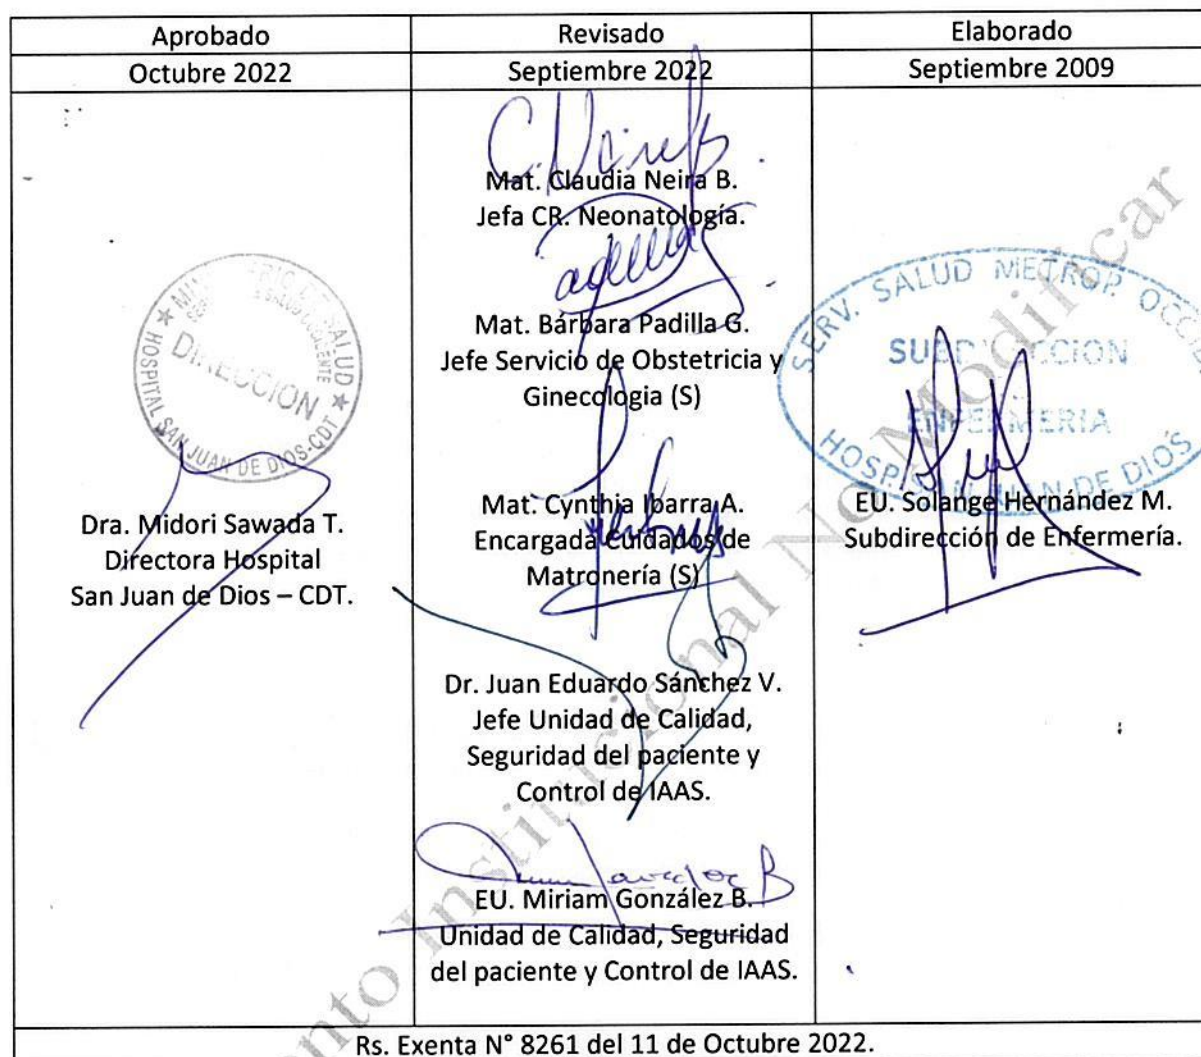 Aprobado
Revisado
Elaborado
Octubre 2022
Septiembre 2022
Septiembre 2009
DIRECCION
HOSPITAL SAN JUAN DE DIOS-CDT
Dra. Midori Sawada T.
Directora Hospital
San Juan de Dios – CDT.
Mat. Claudia Neira B.
Jefa CR. Neonatología.
Mat. Bárbara Padilla G.
Jefe Servicio de Obstetricia y
Ginecologia (S)
Mat. Cynthia Ibarra A.
Encargada Cuidados de
Matronería (S)
Dr. Juan Eduardo Sánchez V.
Jefe Unidad de Calidad,
Seguridad del paciente y
Control de IAAS.
EU. Miriam González B.
Unidad de Calidad, Seguridad
del paciente y Control de IAAS.
SERV. SALUD METROP. OCCI
SUBDIRECCION
ENFERMERIA
HOSP. SAN JUAN DE DIOS
EU. Solange Hernández M.
Subdirección de Enfermería.
Rs. Exenta N° 8261 del 11 de Octubre 2022.
ento Institucional No Modificar